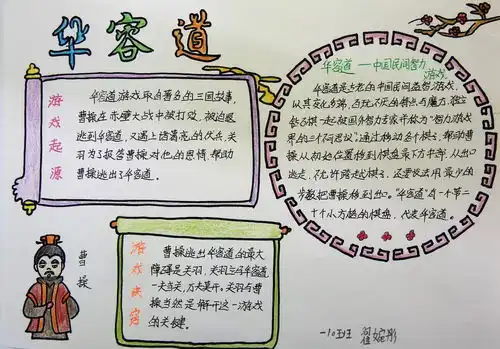 华容道
游戏起源
华容道游戏取自著名的三国故事,
曹操在赤壁大战中被打败,被迫退
逃到华容道,又遇上诸葛亮的伏兵,关
羽为了报答曹操对他的恩情,帮助
曹操逃出了华容道。
华容道——中国民间智力
游戏
华容道是古老的中国民间益智游戏,
以其变化多端、百玩不厌的特点与魔方、独立
钻石棋一起被国外智力专家并称为“智力游戏
界的三个不可思议”。通过移动各个棋子,帮助曹
操从初始位置移到棋盘最下方中部,从出口
逃走。不允许跨越棋子,还要设法用最少的
步数把曹操移到出口。“华容道”有一个带二
十个小方格的棋盘,代表华容道。
曹操
游戏诀窍
曹操逃出华容道的最大
障碍是关羽,关羽立马华容道,
一夫当关,万夫莫开。关羽与曹
操当然是解开这一游戏
的关键。